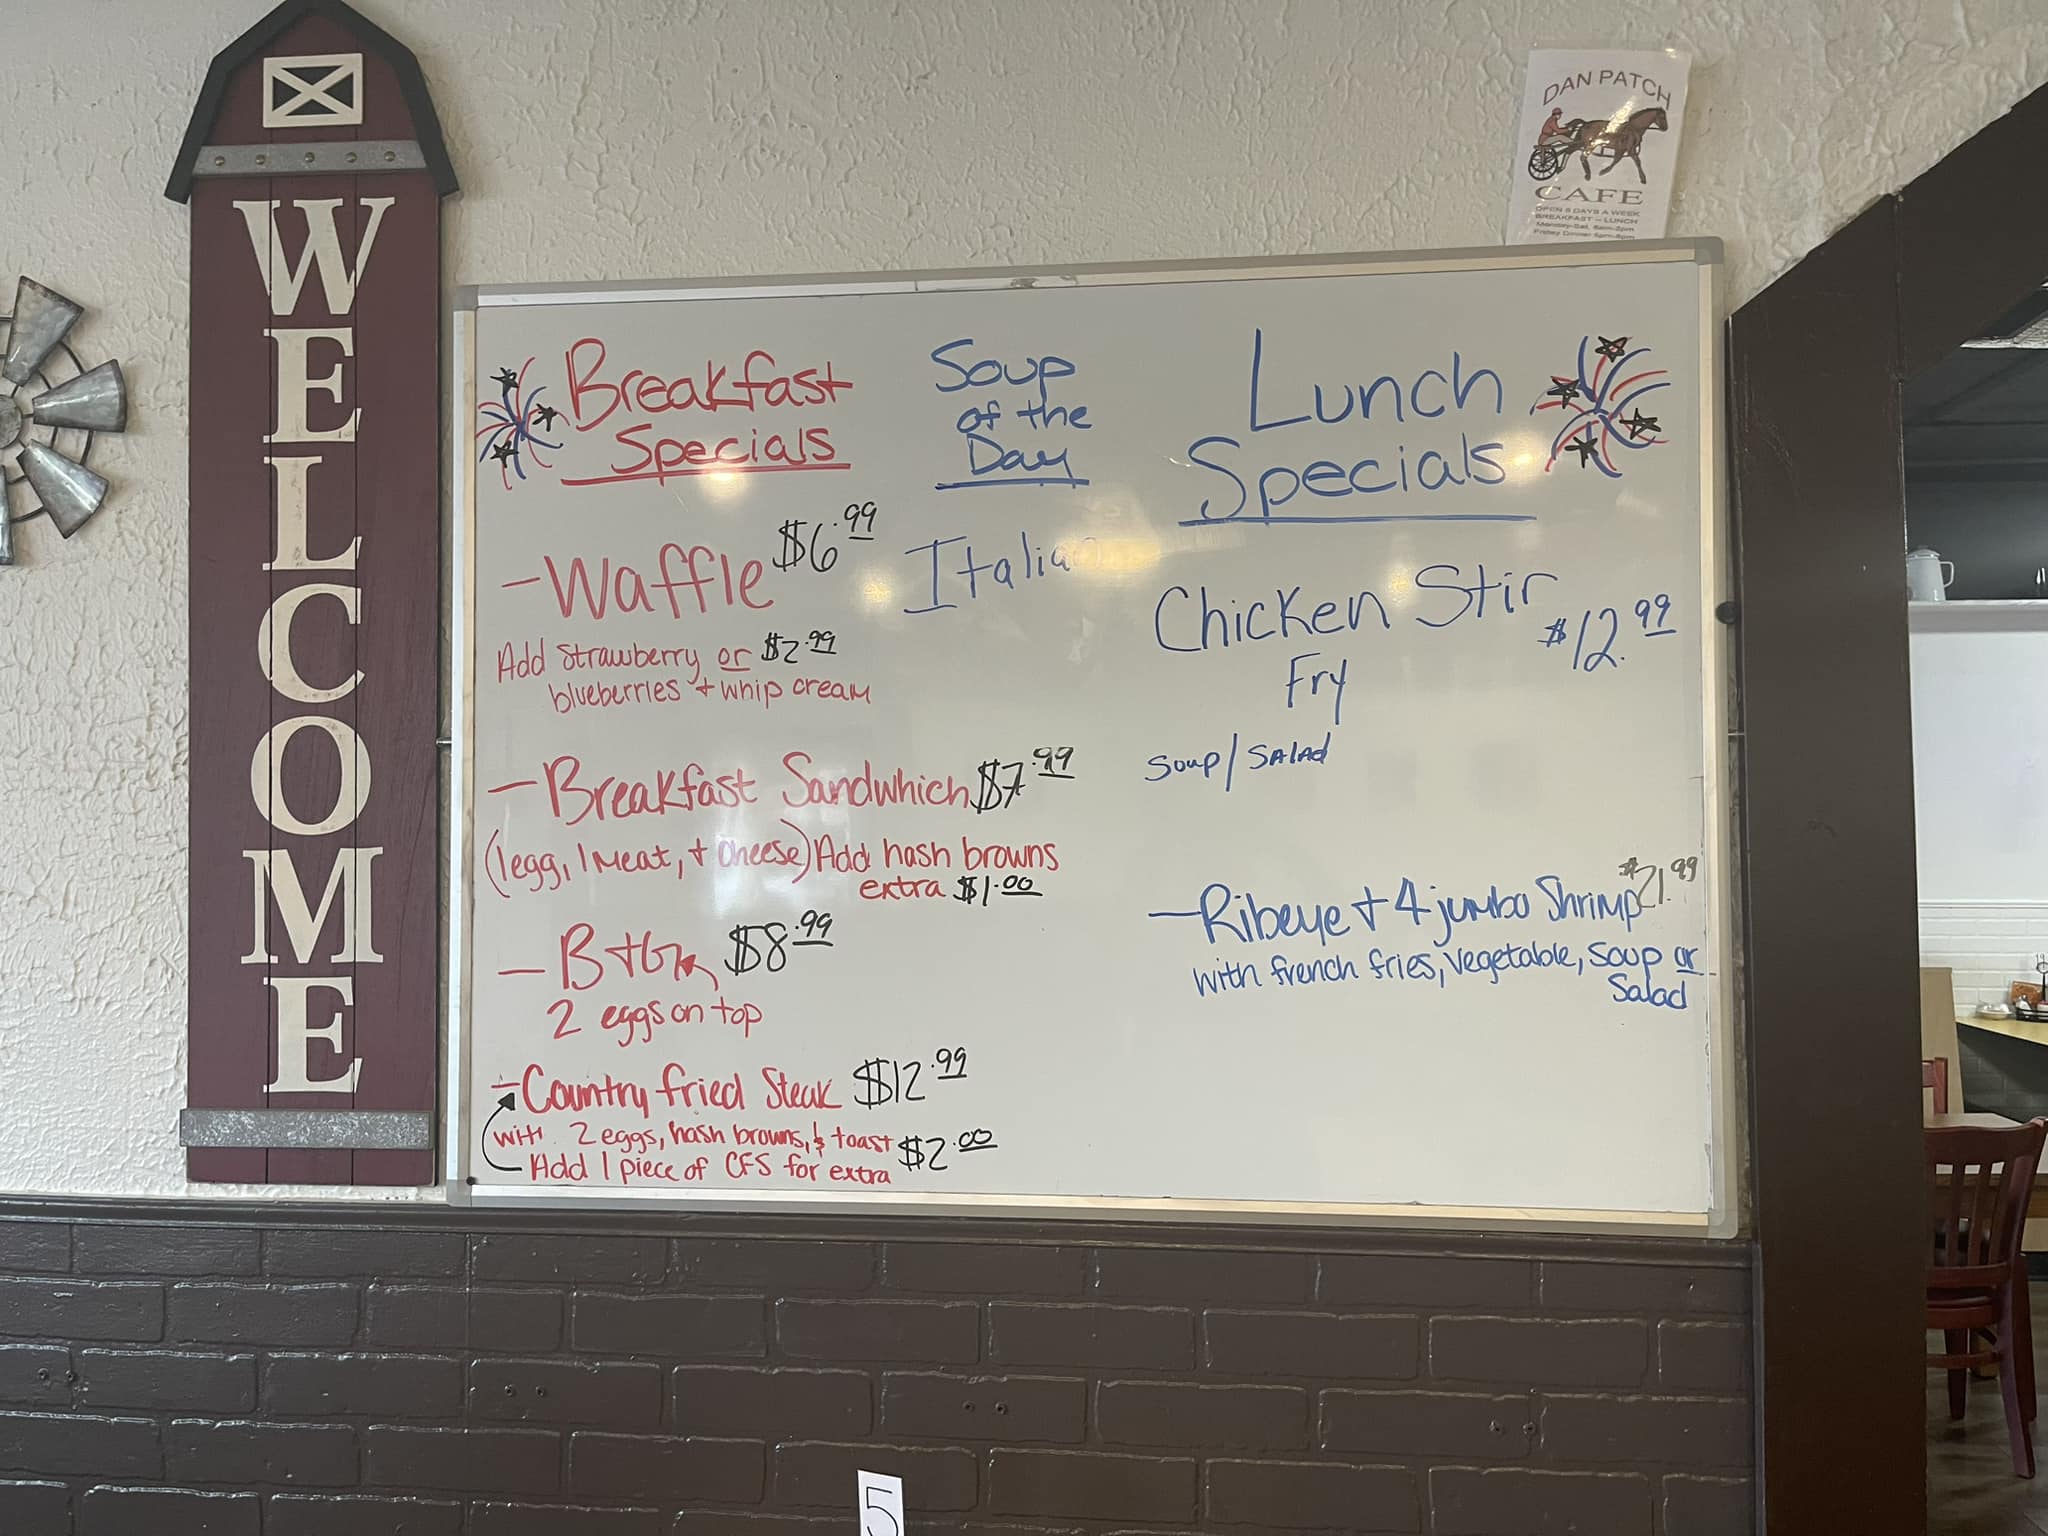 WELCOME
DAN PATCH
CAFE
OPEN 6 DAYS A WEEK
BREAKFAST - LUNCH
Monday-Sat, 6am-2pm
Friday Dinner 5pm-8pm
Breakfast
Specials
- Waffle $6.99
Add strawberry or $2.99
blueberries + whip cream
- Breakfast Sandwhich $7.99
(1egg, 1 Meat, + cheese) Add hash browns
extra $1.00
- B+G $8.99
2 eggs on top
- Country fried Steak $12.99
with 2 eggs, hash browns, & toast
Add 1 piece of CFS for extra $2.00
Soup
of the
Day
Italian
Lunch
Specials
Chicken Stir
Fry $12.99
Soup/Salad
- Ribeye + 4 jumbo Shrimp $21.99
with french fries, vegetable, soup or
Salad
5